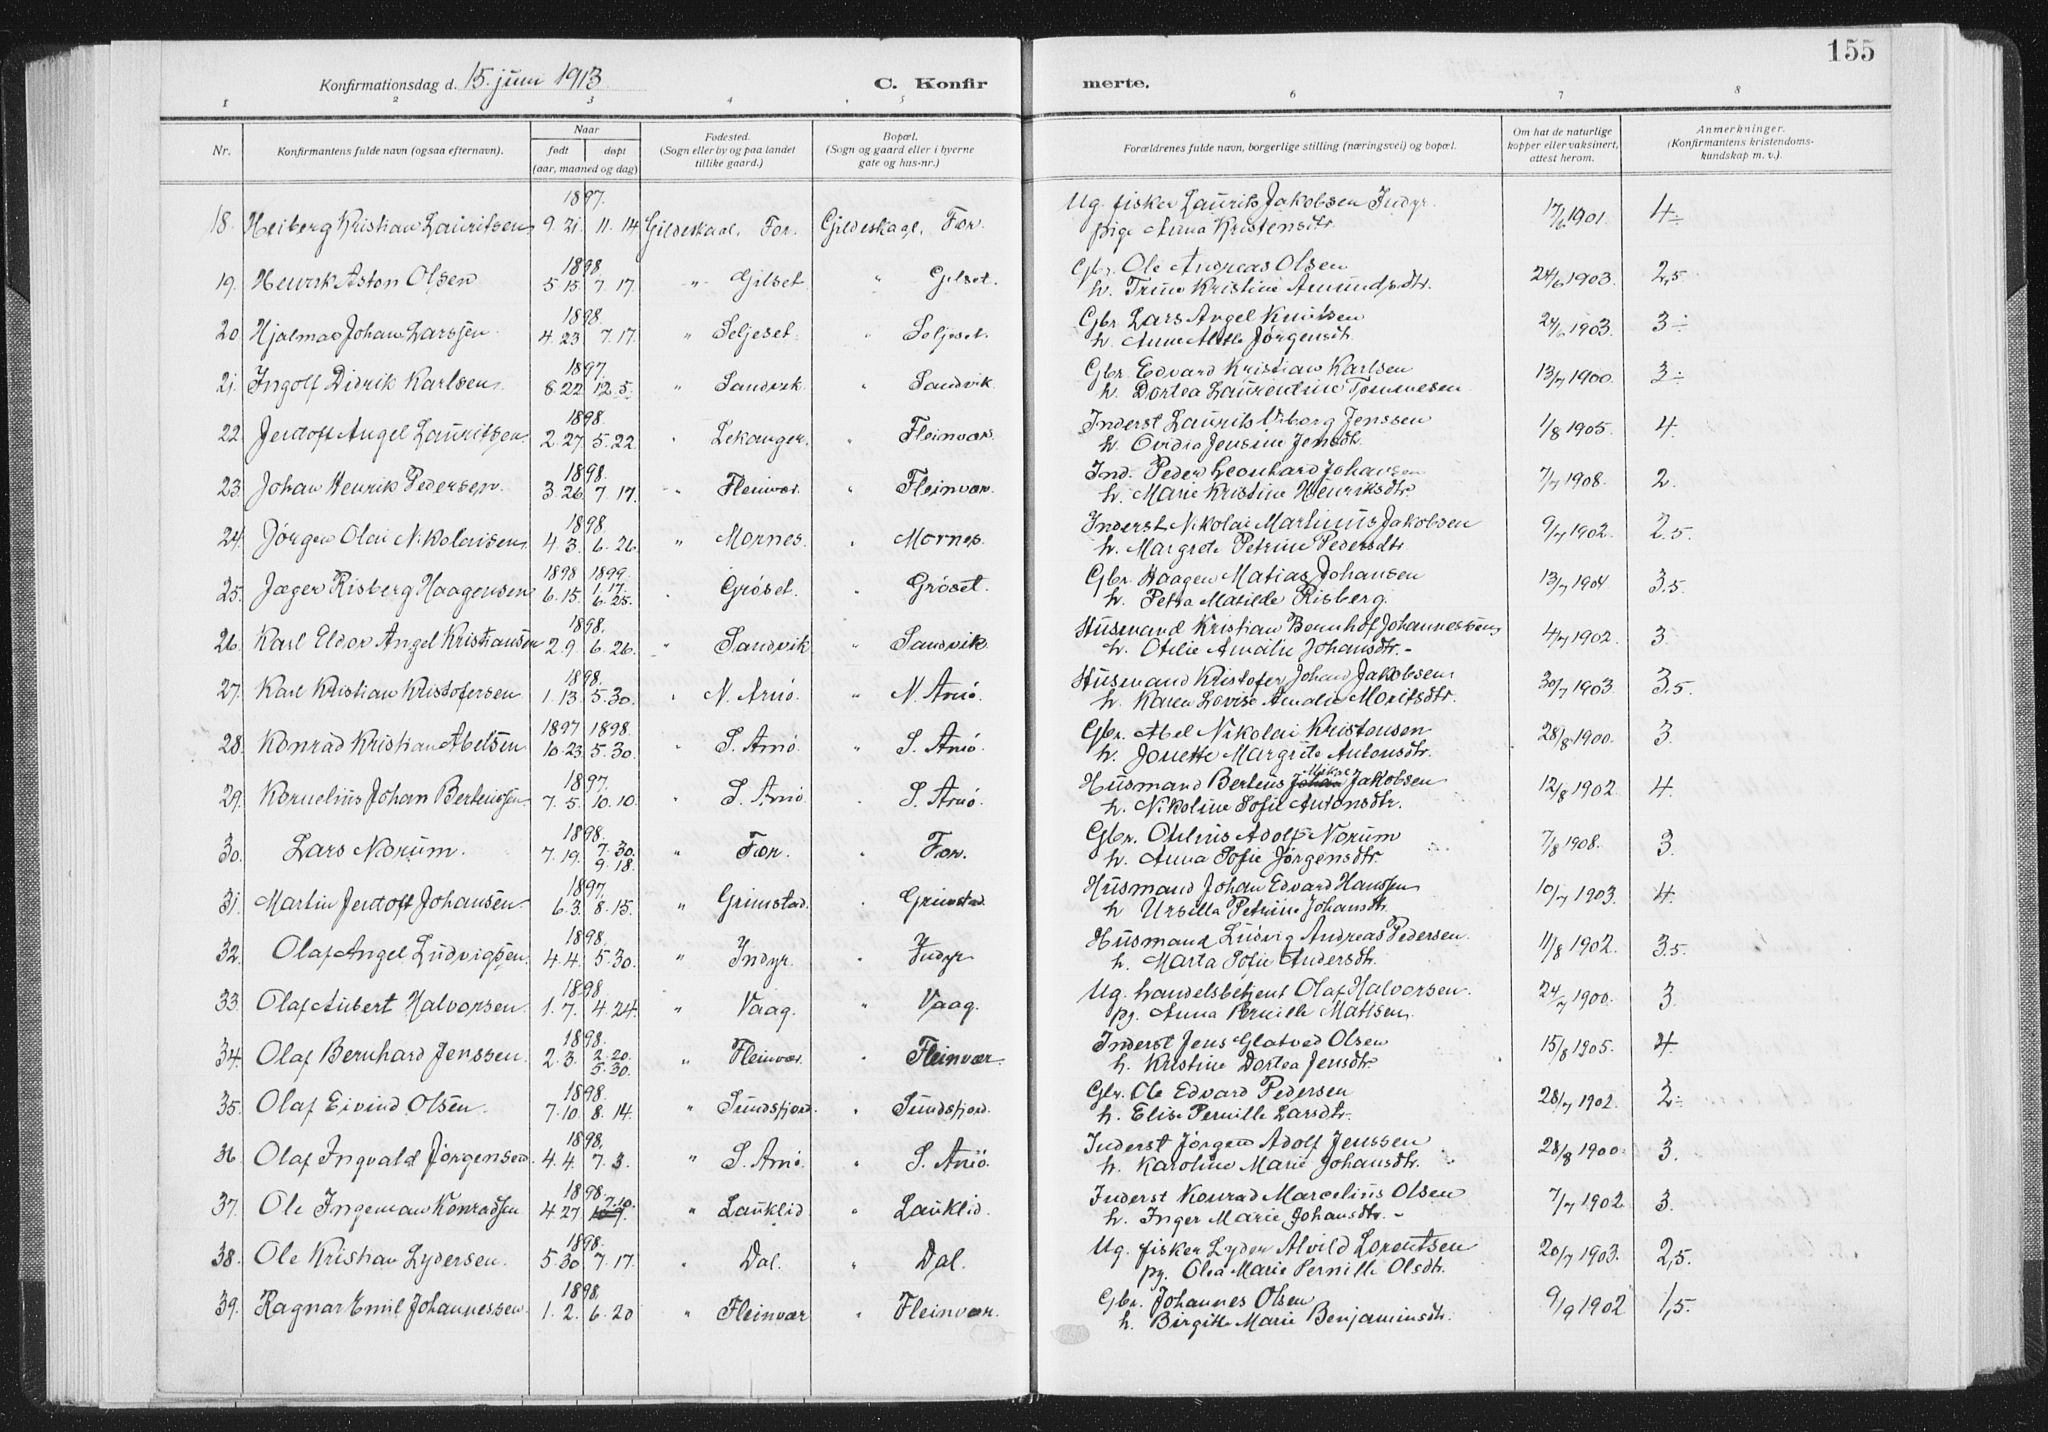 155
Konfirmationsdag d. 15. juni 1913. C. Konfirmerte.
1 2 3 4 5 6 7 8
Nr. Konfirmantens fulde navn (ogsaa efternavn). Naar født døpt (aar, maaned og dag) Fødested. (Sogn eller by og paa landet tillike gaard.) Bopæl. (Sogn og gaard eller i byerne gate og hus-nr.) Forældrenes fulde navn, borgerlige stilling (næringsvei) og bopæl. Om hat de naturlige kopper eller vaksinert, attest herom. Anmerkninger. (Konfirmantens kristendomskundskap m. v.).
1897. Ug. fisker Laurits Jakobsen Indyr.
18. Heiberg Kristian Lauritsen 9. 21. 11. 14 Gildeskaal, For. Gildeskaal, For. pige Anna Kristensdtr. 17/6 1901. 4÷
1898. Gbr. Ole Andreas Olsen
19. Henrik Aston Olsen 5 15 7. 17. " Gilset " Gilset. h. Trine Kristine Amundsdtr. 24/6 1903. 2,5
1898. Gbr. Lars Angel Knutsen
20. Hjalmar Johan Larssen 4. 23 7. 17. " Seljeset " Seljeset. h. Anne Jørgensdtr. 24/6 1903. 3÷
1897. Gbr. Edvard Kristian Karlsen
21. Ingolf Didrik Karlsen 8. 22 12. 5. " Sandvik " Sandvik h. Dortea Laurentine Tønnesen 13/7 1900. 3÷
1898. Inderst Laurits Viborg Jenssen
22. Jentoft Angel Lauritsen 2. 27 5. 22. " Lekanger " Fleinvær. h. Ovidia Jensine Jensdtr. 1/8 1905. 4.
1898. Ind. Peder Leonhard Johansen
23. Johan Henrik Pedersen. 3. 26. 7. 17. " Fleinvær. " Fleinvær. h. Marie Kristine Henriksdtr. 7/7 1908. 2.
1898. Inderst Nikolai Martinus Jakobsen
24. Jørgen Olai Nikolaisen 4. 3. 6. 26. " Mornes. " Mornes. h. Margrete Petrine Pedersdtr 9/7 1902. 2.5.
1898 1899. Gbr. Haagen Matias Johansen
25. Jæger Risberg Haagensen 6. 15. 1. 17. 6. 25. " Grøset. " Grøset. h. Petra Matilde Risberg. 13/7 1904. 3.5.
1898. Husmand Kristian Bernhof Johannessen
26. Karl Eldor Angel Kristiansen 2. 9 6. 26. " Sandvik " Sandvik. h. Otilie Amalie Johansdtr. 4/7 1902. 3.
1898. Husmand Kristofer Johan Jakobsen
27. Karl Kristian Kristofersen 1. 13. 5. 30. " N. Arnø. " N. Arnø. h. Karen Lovise Amalie Moritsdtr. 30/7 1903. 3.5.
1897 1898. Gbr. Abel Nikolai Kristensen
28. Konrad Kristian Abelsen 10. 23 5. 30. " S. Arnø. " S. Arnø. h. Jonette Margrete Antonsdtr. 28/8 1900. 3.
1897. Husmand Bertens Johan Mikal Jakobsen
29. Kornelius Johan Bertenssen 7. 5. 10. 10. " S. Arnø " S. Arnø. h. Nikoline Sofie Antonsdtr. 12/8 1902. 4.
1898. Gbr. Otelius Adolf Norum
30. Lars Norum. 7. 19. 7. 30. 9. 18. " For. " For. h. Anna Sofie Jørgensdtr. 7/8 1908. 3.
1897. Husmand Johan Edvard Hanssen
31. Martin Jentoft Johansen. 6. 3. 8. 15. " Grimstad. " Grimstad. h. Ursella Petrine Johansdtr. 10/7 1903. 4.
1898. Husmand Ludvig Andreas Pedersen.
32. Olaf Angel Ludvigsen 4. 4. 5. 30. " Indyr. " Indyr h. Marta Sofie Andersdtr. 11/8 1902. 3.5.
1898. Ug. handelsbetjent Olaf Halvorsen.
33. Olaf Aubert Halvorsen. 1. 7. 4. 24. " Vaag. " Vaag. pg. Anna Pernille Matisen. 24/7 1900. 3.
1898. Inderst Jens Glatved Olsen
34. Olaf Bernhard Jenssen. 2. 3. 2. 20. 5. 30. " Fleinvær. " Fleinvær. h. Kristine Dortea Jensdtr. 15/8 1905. 4.
1898. Gbr. Ole Edvard Pedersen
35. Olaf Eivind Olsen. 7. 10. 8. 14. " Sundsfjord. " Sundsfjord. h. Elise Pernille Larsdtr. 28/7 1902. 2÷
1898. Inderst Jørgen Adolf Jenssen
36. Olaf Ingvald Jørgensen. 4. 4. 7. 3. " S. Arnø. " S. Arnø. h. Karoline Marie Johansdtr. 28/8 1900. 3.
1898. Inderst Konrad Marcelius Olsen
37. Ole Ingeman Konradsen 4. 27 7. 10. " Lauklid. " Lauklid. h. Inger Marie Johansdtr. 7/7 1902 3.
1898. Ug. fisker Lyder Alvild Lorentsen
38. Ole Kristian Lydersen. 5. 30. 7. 17. " Dal. " Dal. pg. Olea Marie Pernille Olsdtr. 20/7 1903. 2,5.
1898. Gbr. Johannes Olsen
39. Ragnar Emil Johannessen 1. 2. 6. 20 " Fleinvær " Fleinvær. h. Birgitte Marie Benjaminsdtr. 9/9 1902 1,5.